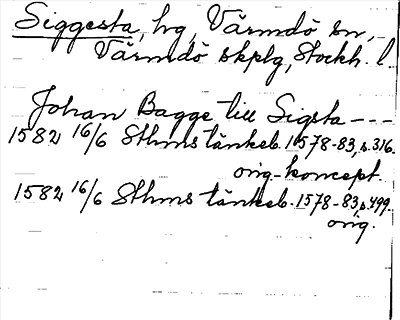 Siggesta, hg, Värmdö sn,
Värmdö skplg, Stockh. l.
Johan Bagge till Sigsta ---
1582 16/6 Sthms tänkeb. 1578-83, s. 316.
orig-koncept.
1582 16/6 Sthms tänkeb. 1578-83, s. 499.
orig.